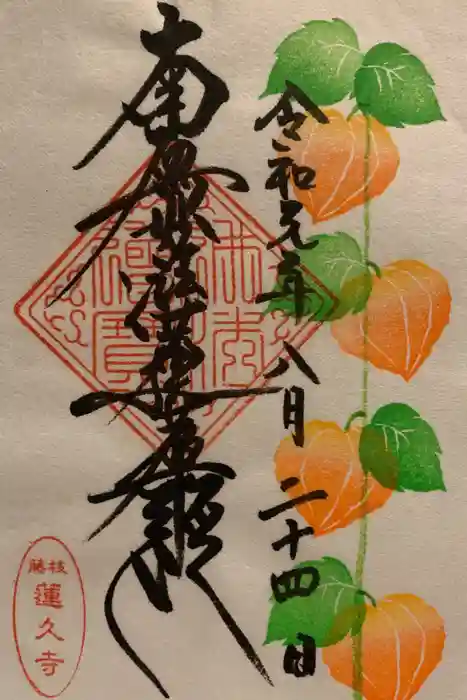 令和元年八月二十四日
南無妙法蓮華経
藤枝
蓮久寺